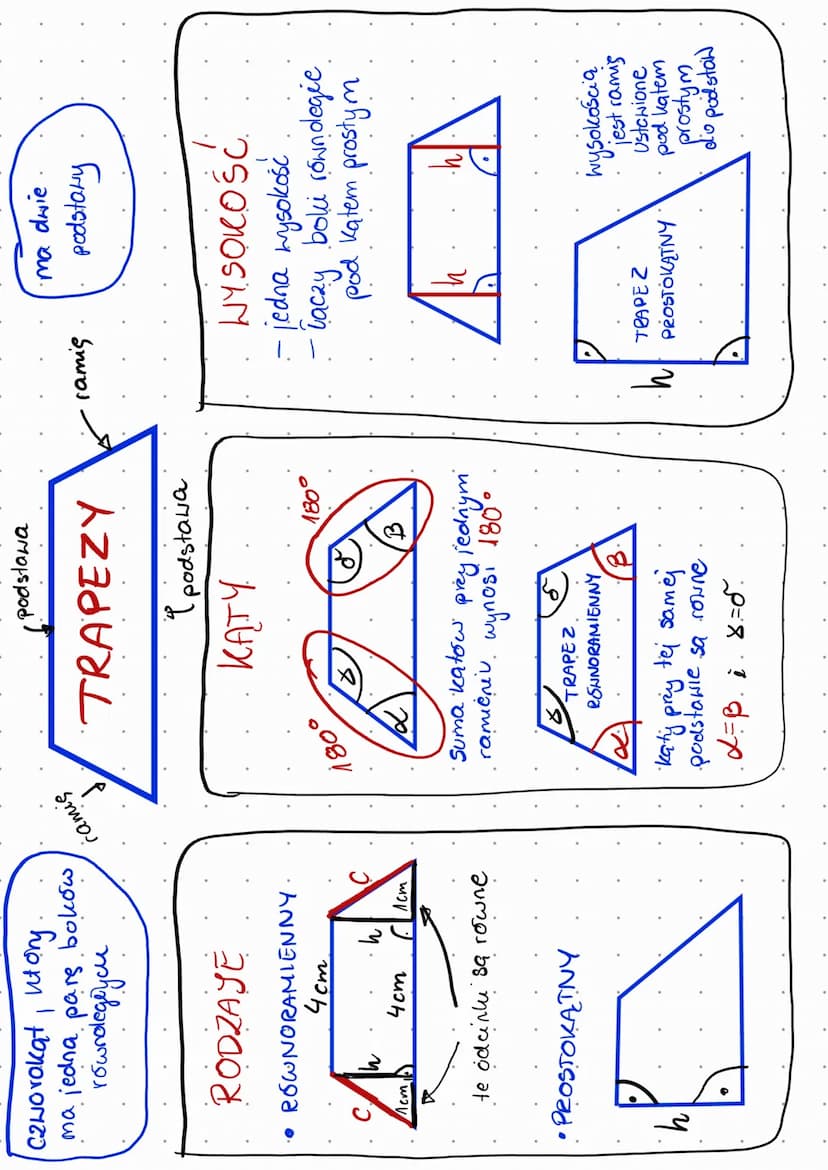 czworokąt, który
ma jedna parę boków
równoległych
podstawa
ramię
TRAPEZY
ramię
podstawa
ma dwie
podstawy
RODZAJE
• RÓWNORAMIENNY
4cm
C
h
h
C
1cm
4cm
1cm
te odcinki są równe
• PROSTOKĄTNY
h
KĄTY
180°
180°
γ
δ
α
β
suma kątów przy jednym
ramieniu wynosi 180°
γ
δ
TRAPEZ
RÓWNORAMIENNY
α
β
kąty przy tej samej
podstawie są równe
α=β i γ=δ
WYSOKOŚĆ
– jedna wysokość
– łączy boki równoległe
pod kątem prostym
h
h
h
TRAPEZ
PROSTOKĄTNY
wysokością
jest ramię
ustawione
pod kątem
prostym
do podstaw